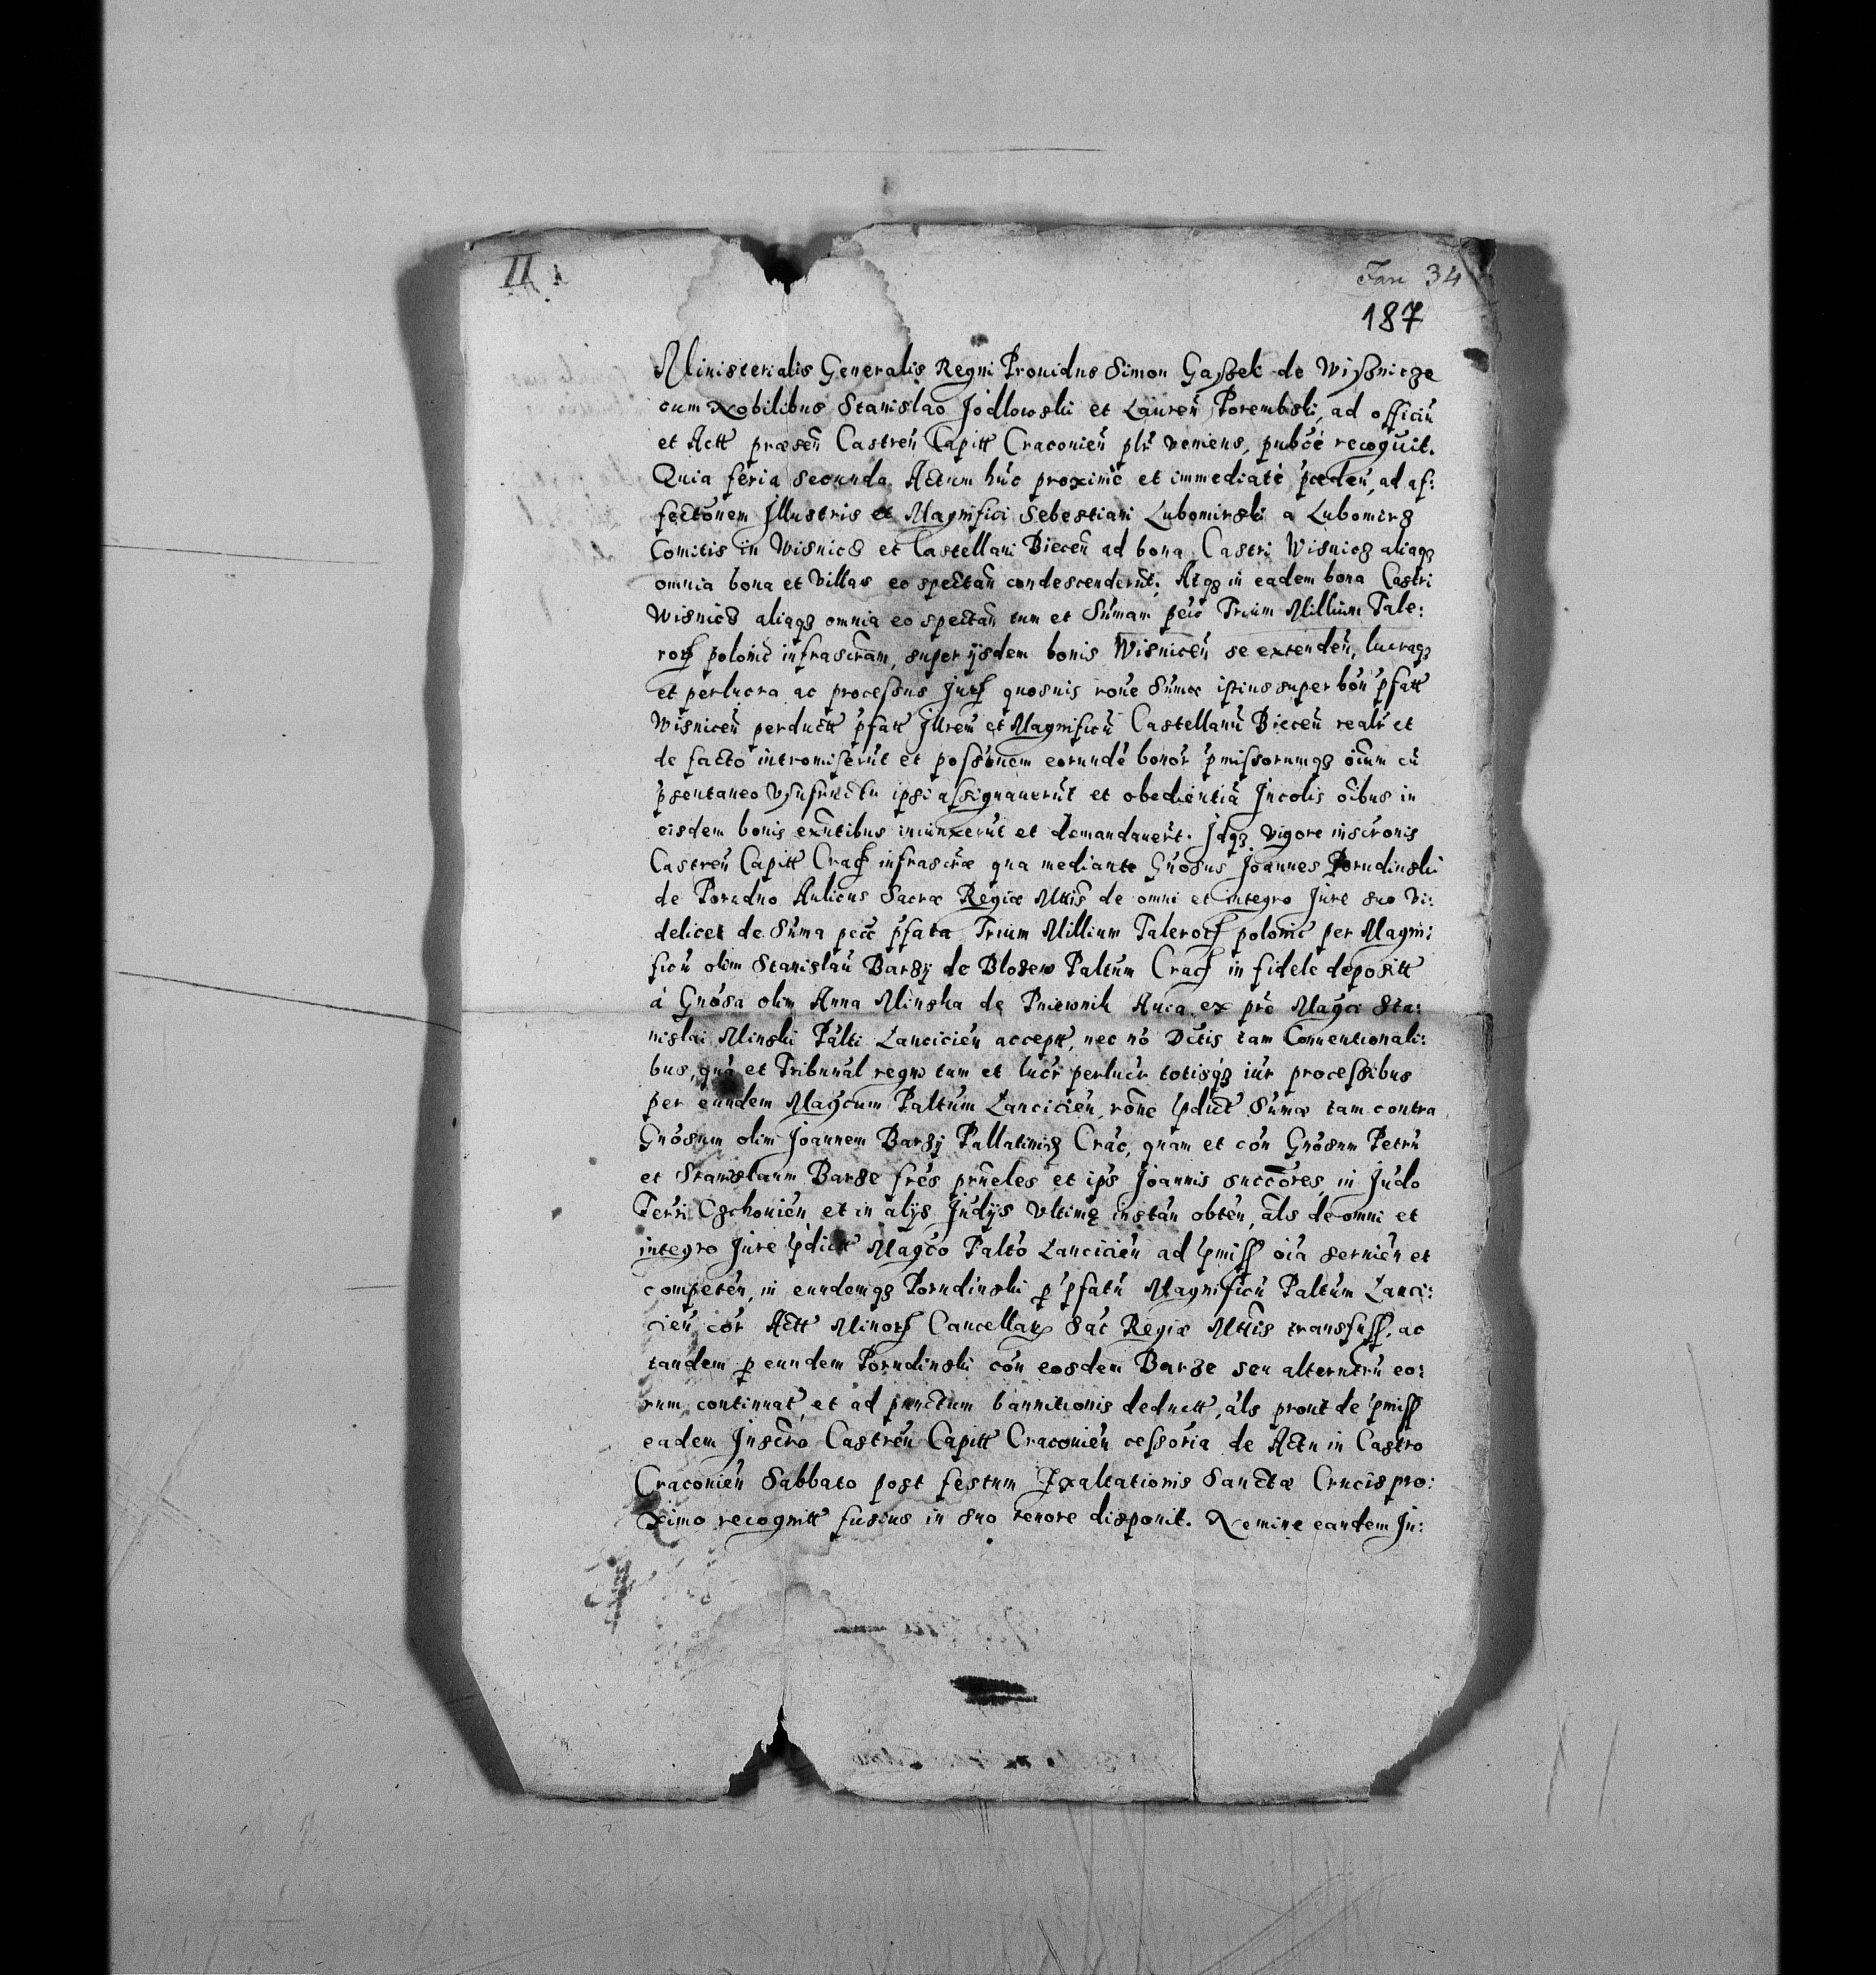 II
Fan 34
187
Ministerialis Generalis Regni Prouidus Simon Gaßek de Wißnicze
cum Nobilibus Stanislao Jodlowski et Lauren Porembski, ad officiu
et Actt præsen Castren Capitt Craconien plr veniens, pubce recognit.
Quia feria secunda Actum huc proxime et immediate pceden, ad af:
fectonem Illustris et Magnifici Sebestiani Lubomirski a Lubomirz
Comitis in Wisnicz et Castellani Biecen ad bona Castri Wisnicz aliaqz
omnia bona et Villas eo spectan condescenderut. Atqz in eadem bona Castri
Wisnicz aliaqz omnia eo spectan tum et Sumam pec Trium Millium Tale:
ror polonic infrascram, super ijsdem bonis Wisnicen se extenden, lucraqz
et perlucra ac processus Jur quosuis rone Sumæ istius super bon pfatt
Wisnicen perductt pfatt Illrem et Magnificu Castellanu Biecen realr et
de facto intromiserut et possonem eorunde bonor pmissorumqz oium cu
psentaneo Vsufructu ipsi assignauerut et obedientia Incolis oibus in
eisdem bonis exntibus iniunxerut et demandauert. Idqz vigore inscronis
Castren Capitt Crac infrascræ qua mediante Gnosus Joannes Porudinski
de Porudno Aulicus Sacræ Regiæ Mttis de omni et integro Jure suo Vi:
delicet de Suma pecc pfata Trium Millium Taleror polonic per Magni:
ficu olim Stanislau Barzy de Blozew Paltum Crac in fidele depositt
á Gnosa olim Anna Minska de Pniewnik Auia ex pre Magci Sta:
nislai Minski Palti Lancicien acceptt, nec no Dctis tam Conuentionali:
bus, qua et Tribunal regni tum et lucr perlucr totisqz iur processibus
per eundem Magcum Paltum Lancicien, rone pdict Sumæ tam contra
Gnosum olim Joannem Barzy Pallatinid Crac, quam et con Gnosum Petru
et Stanislaum Barze fres prueles et ips Joannis succores, in Judo
Terri Czchouien et in alijs Judijs Vltime instan obten, als de omni et
integro Jure pdictt Magco Palto Lancicien ad pmiss oia seruien et
competen, in eundemqz Porudinski p pfatu Magnificu Paltum Lanci:
cien, cor Actt Minor Cancellar Sac Regiæ Mttis transfuss, ac
tandem p eundem Porudinski con eosdem Barze seu alterutru eo:
rum continuat et ad punctum bannitionis deductt, als prout de pmiss
eadem Inscro Castren Capitt Craconien cessoria de Actu in Castro
Craconien Sabbato post festum Exaltationis Sanctæ Crucis pro:
ximo recognitt fusius in suo tenore disponit. Nemine eandem In: